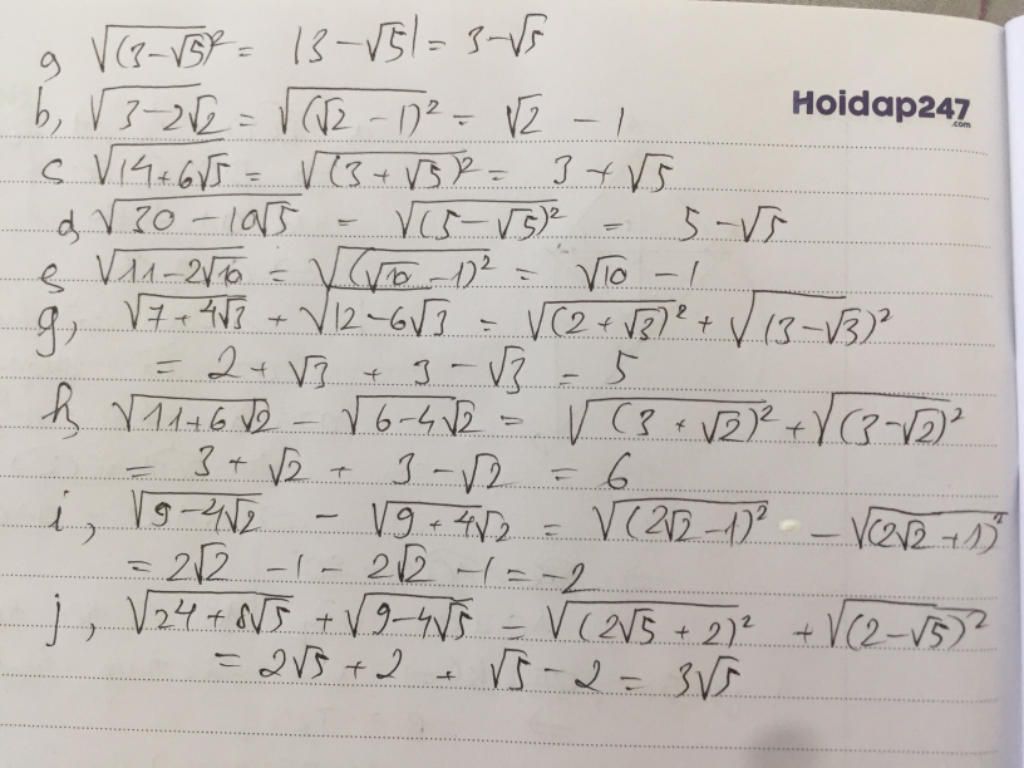 a √(3-√5)² = |3-√5| = 3-√5
Hoidap247
.com
b, √3-2√2 = √(√2 -1)² = √2 - 1
c √14+6√5 = √(3+√5)² = 3+√5
d √30-10√5 = √(5-√5)² = 5-√5
e √11-2√10 = √(√10 -1)² = √10 - 1
g, √7+4√3 + √12-6√3 = √(2+√3)² + √(3-√3)²
= 2+√3 + 3-√3 = 5
h √11+6√2 - √6-4√2 = √(3+√2)² + √(3-√2)²
= 3+√2 + 3-√2 = 6
i, √9-4√2 - √9+4√2 = √(2√2 -1)² - √(2√2 +1)²
= 2√2 -1 - 2√2 -1 = -2
j, √24+8√5 + √9-4√5 = √(2√5+2)² + √(2-√5)²
= 2√5+2 + √5-2 = 3√5